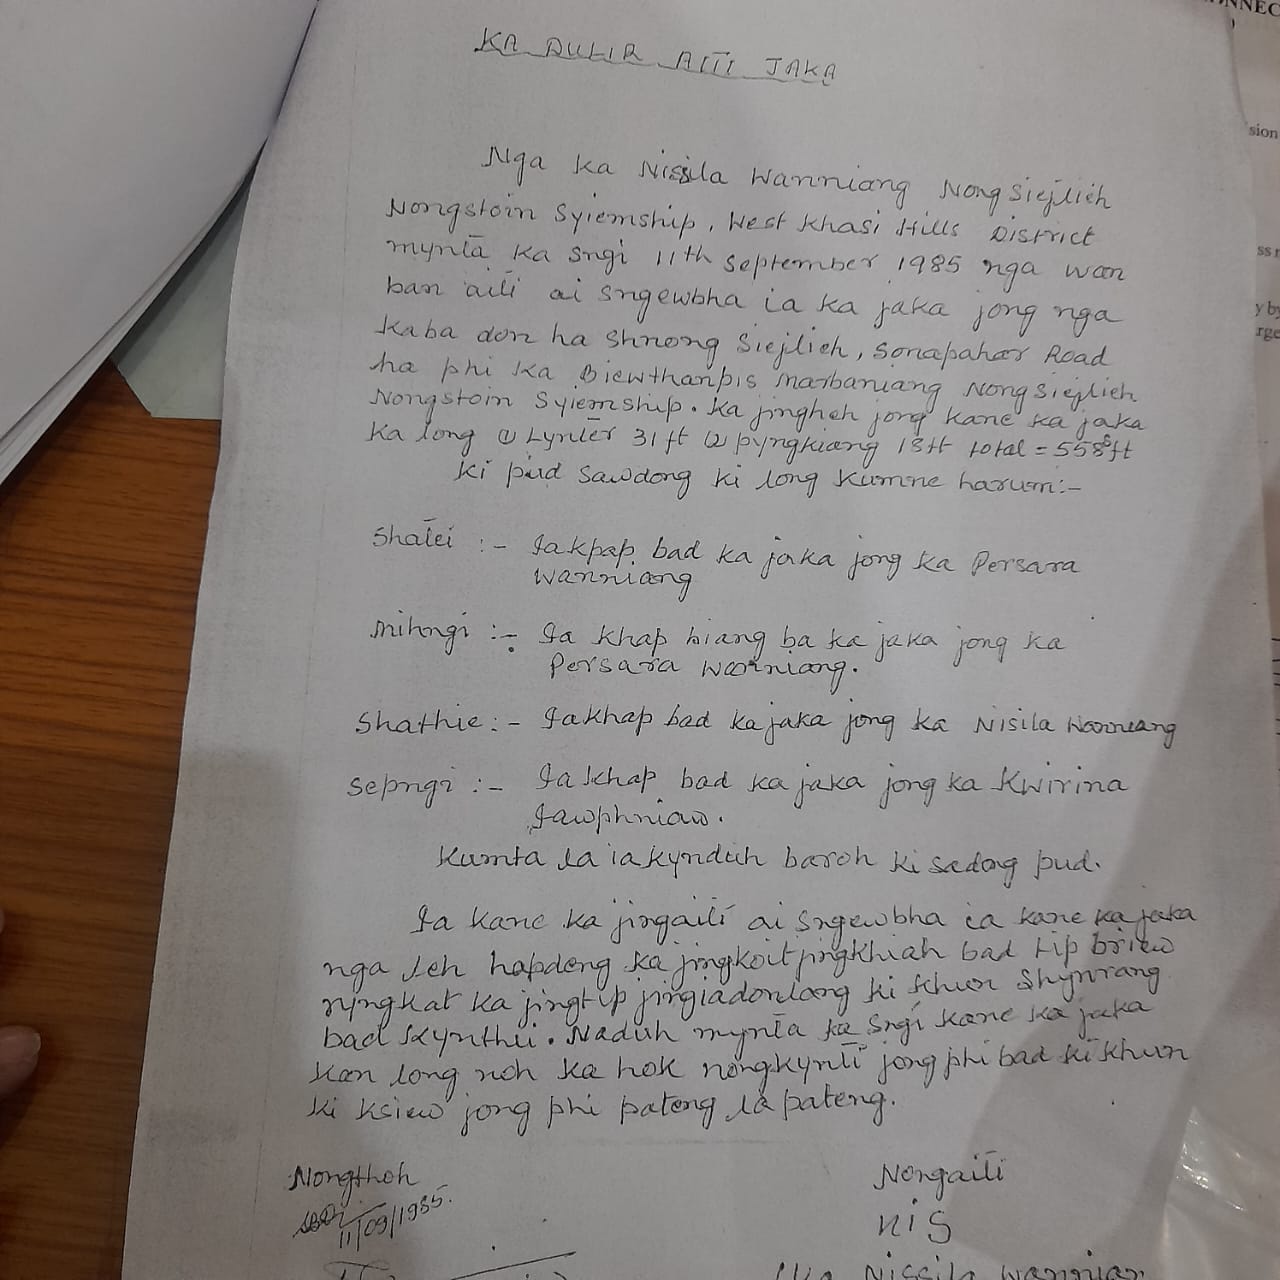 KA DULIR AITI JAKA
Nga ka Nissila Wanniang Nongsiejlieh
Nongstoin Syiemship, West Khasi Hills District
mynta ka sngi 11th September 1985 nga wan
ban aiti ai sngewbha ia ka jaka jong nga
kaba don ha Shnong Siejlieh, Sonapahar Road
ha phi ka Biewthanbis Marbaniang Nongsiejlieh
Nongstoin Syiemship. Ka jingheh jong kane ka jaka
Ka long ① Lynter 31 ft ② pyngkiang 18ft total = 558 ft
Ki pud sawdong ki long kumne harum:-
Shatei :- Iakpap bad ka jaka jong ka Persara
Wanniang
Mihngi :- Ia khap biang ba ka jaka jong ka
Persara Wanniang.
Shathie :- Iakhap bad ka jaka jong ka Nisila Wanniang
Sepngi :- Ia khap bad ka jaka jong ka Kwirina
Iawphniaw.
Kumta la ia kynduh baroh ki sadog pud.
Ia kane ka jingaiti ai sngewbha ia kane ka jaka
nga leh hapdeng ka jingkoit jingkhiah bad tip briew
ryngkat ka jingtip jingiadonlang ki khun Shynrang
bad Kynthei. Naduh mynta ka sngi kane ka jaka
kan long noh ka hok nongkynti jong phi bad ki khun
ki ksiew jong phi pateng la pateng.
Nongthoh
11/09/1985.
Nongaiti
NIS
Ka Nissila Wanniang
NNEC
sion
ss
y by
rge